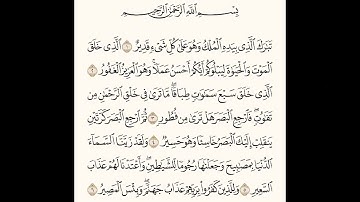 بِسْمِ ٱللَّهِ ٱلرَّحْمَٰنِ ٱلرَّحِيمِ
تَبَٰرَكَ ٱلَّذِى بِيَدِهِ ٱلْمُلْكُ وَهُوَ عَلَىٰ كُلِّ شَىْءٍ قَدِيرٌ ١ ٱلَّذِى خَلَقَ
ٱلْمَوْتَ وَٱلْحَيَوٰةَ لِيَبْلُوَكُمْ أَيُّكُمْ أَحْسَنُ عَمَلًا وَهُوَ ٱلْعَزِيزُ ٱلْغَفُورُ
٢
ٱلَّذِى خَلَقَ سَبْعَ سَمَٰوَٰتٍ طِبَاقًا مَّا تَرَىٰ فِى خَلْقِ ٱلرَّحْمَٰنِ مِن
تَفَٰوُتٍ فَٱرْجِعِ ٱلْبَصَرَ هَلْ تَرَىٰ مِن فُطُورٍ ٣ ثُمَّ ٱرْجِعِ ٱلْبَصَرَ كَرَّتَيْنِ
يَنقَلِبْ إِلَيْكَ ٱلْبَصَرُ خَاسِئًا وَهُوَ حَسِيرٌ ٤ وَلَقَدْ زَيَّنَّا ٱلسَّمَآءَ
ٱلدُّنْيَا بِمَصَٰبِيحَ وَجَعَلْنَٰهَا رُجُومًا لِّلشَّيَٰطِينِ وَأَعْتَدْنَا لَهُمْ عَذَابَ
ٱلسَّعِيرِ ٥ وَلِلَّذِينَ كَفَرُوا۟ بِرَبِّهِمْ عَذَابُ جَهَنَّمَ وَبِئْسَ ٱلْمَصِيرُ ٦